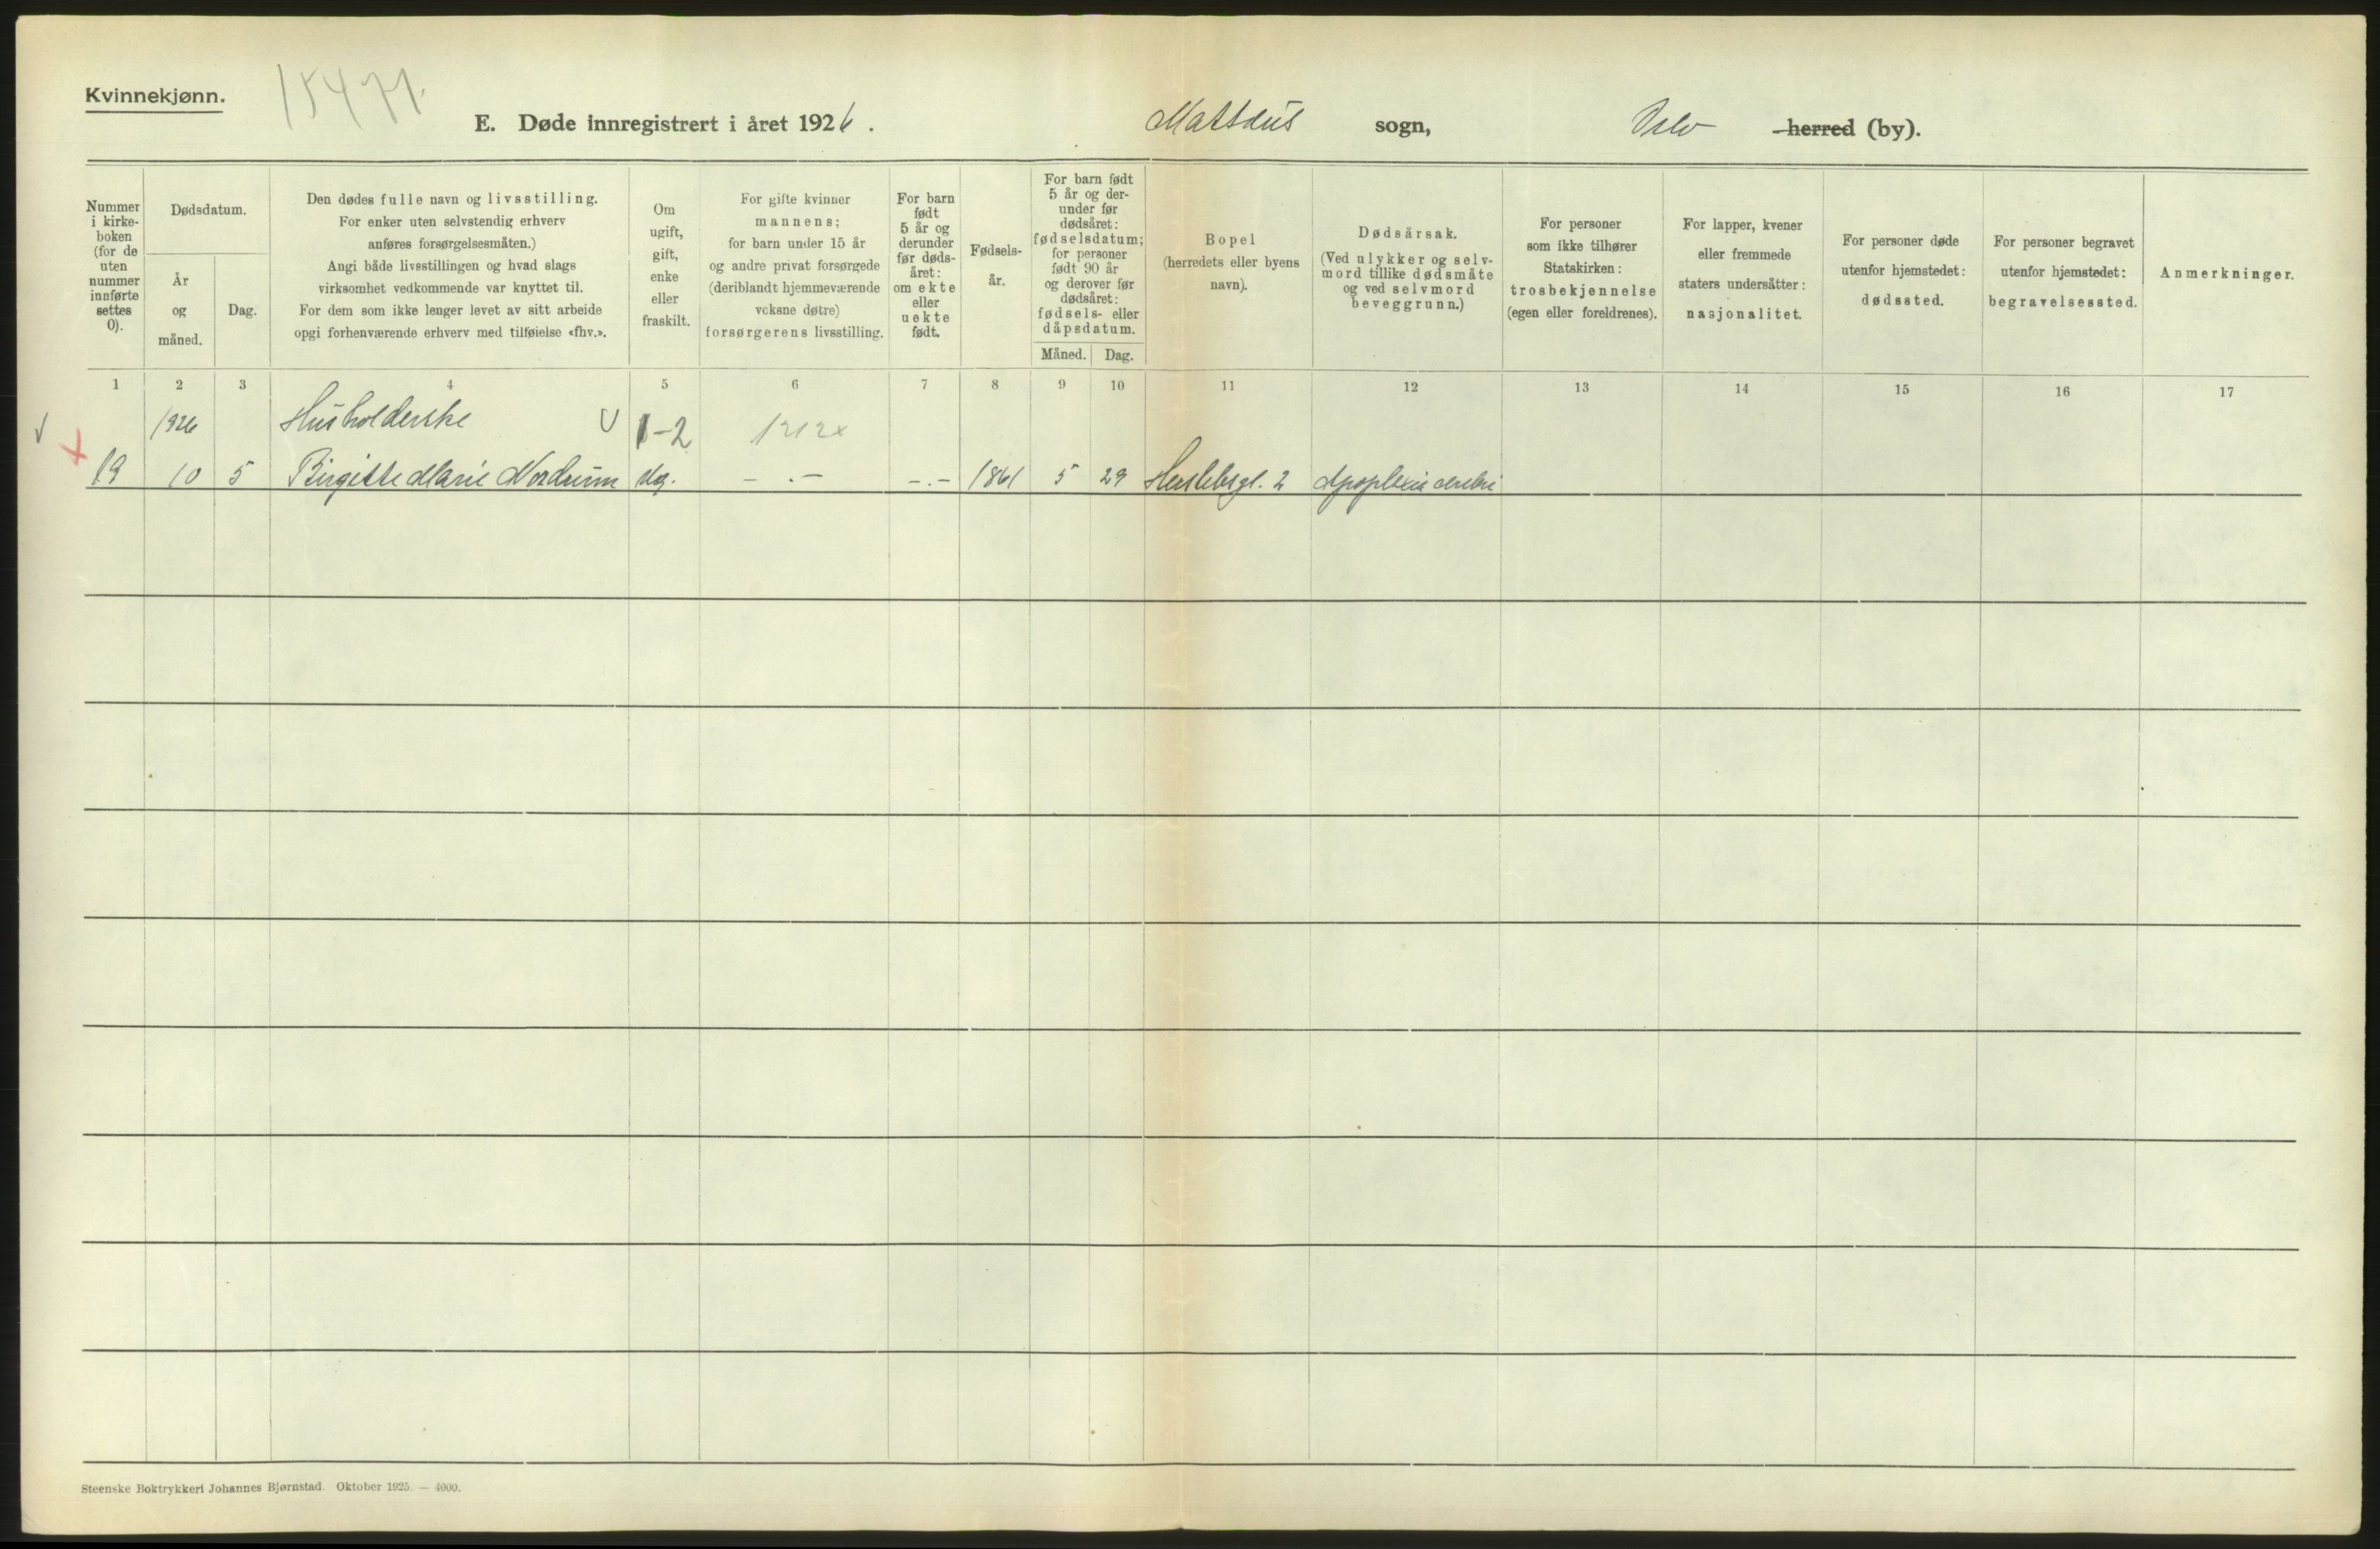 Kvinnekjønn.
15471.
E. Døde innregistrert i året 1926.
Mattæus sogn,
Oslo herred (by).
Nummer
i kirke-
boken
(for de
uten
nummer
innførte
settes
0).
Dødsdatum.
År
og
måned.
Dag.
Den dødes fulle navn og livsstilling.
For enker uten selvstendig erhverv
anføres forsørgelsesmåten.)
Angi både livsstillingen og hvad slags
virksomhet vedkommende var knyttet til.
For dem som ikke lenger levet av sitt arbeide
opgi forhenværende erhverv med tilføielse «fhv.».
Om
ugift,
gift,
enke
eller
fraskilt.
For gifte kvinner
mannens;
for barn under 15 år
og andre privat forsørgede
(deriblandt hjemmeværende
voksne døtre)
forsørgerens livsstilling.
For barn
født
5 år og
derunder
før døds-
året:
om ekte
eller
uekte
født.
Fødsels-
år.
For barn født
5 år og der-
under før
dødsåret:
fødselsdatum;
for personer
født 90 år
og derover før
dødsåret:
fødsels- eller
dåpsdatum.
Måned. Dag.
Bopel
(herredets eller byens
navn).
Dødsårsak.
(Ved ulykker og selv-
mord tillike dødsmåte
og ved selvmord
beveggrunn.)
For personer
som ikke tilhører
Statskirken:
trosbekjennelse
(egen eller foreldrenes).
For lapper, kvener
eller fremmede
staters undersåtter:
nasjonalitet.
For personer døde
utenfor hjemstedet:
dødssted.
For personer begravet
utenfor hjemstedet:
begravelsessted.
Anmerkninger.
1 2 3 4 5 6 7 8 9 10 11 12 13 14 15 16 17
1926 Husholderske U 1-2 1212x
19 10 5 Birgitte Marie Nordrum Ug. - . - - . - 1861 5 29 Herslebsgt. 2 Apoplexia cerebri
Steenske Boktrykkeri Johannes Bjørnstad. Oktober 1925. — 4000.